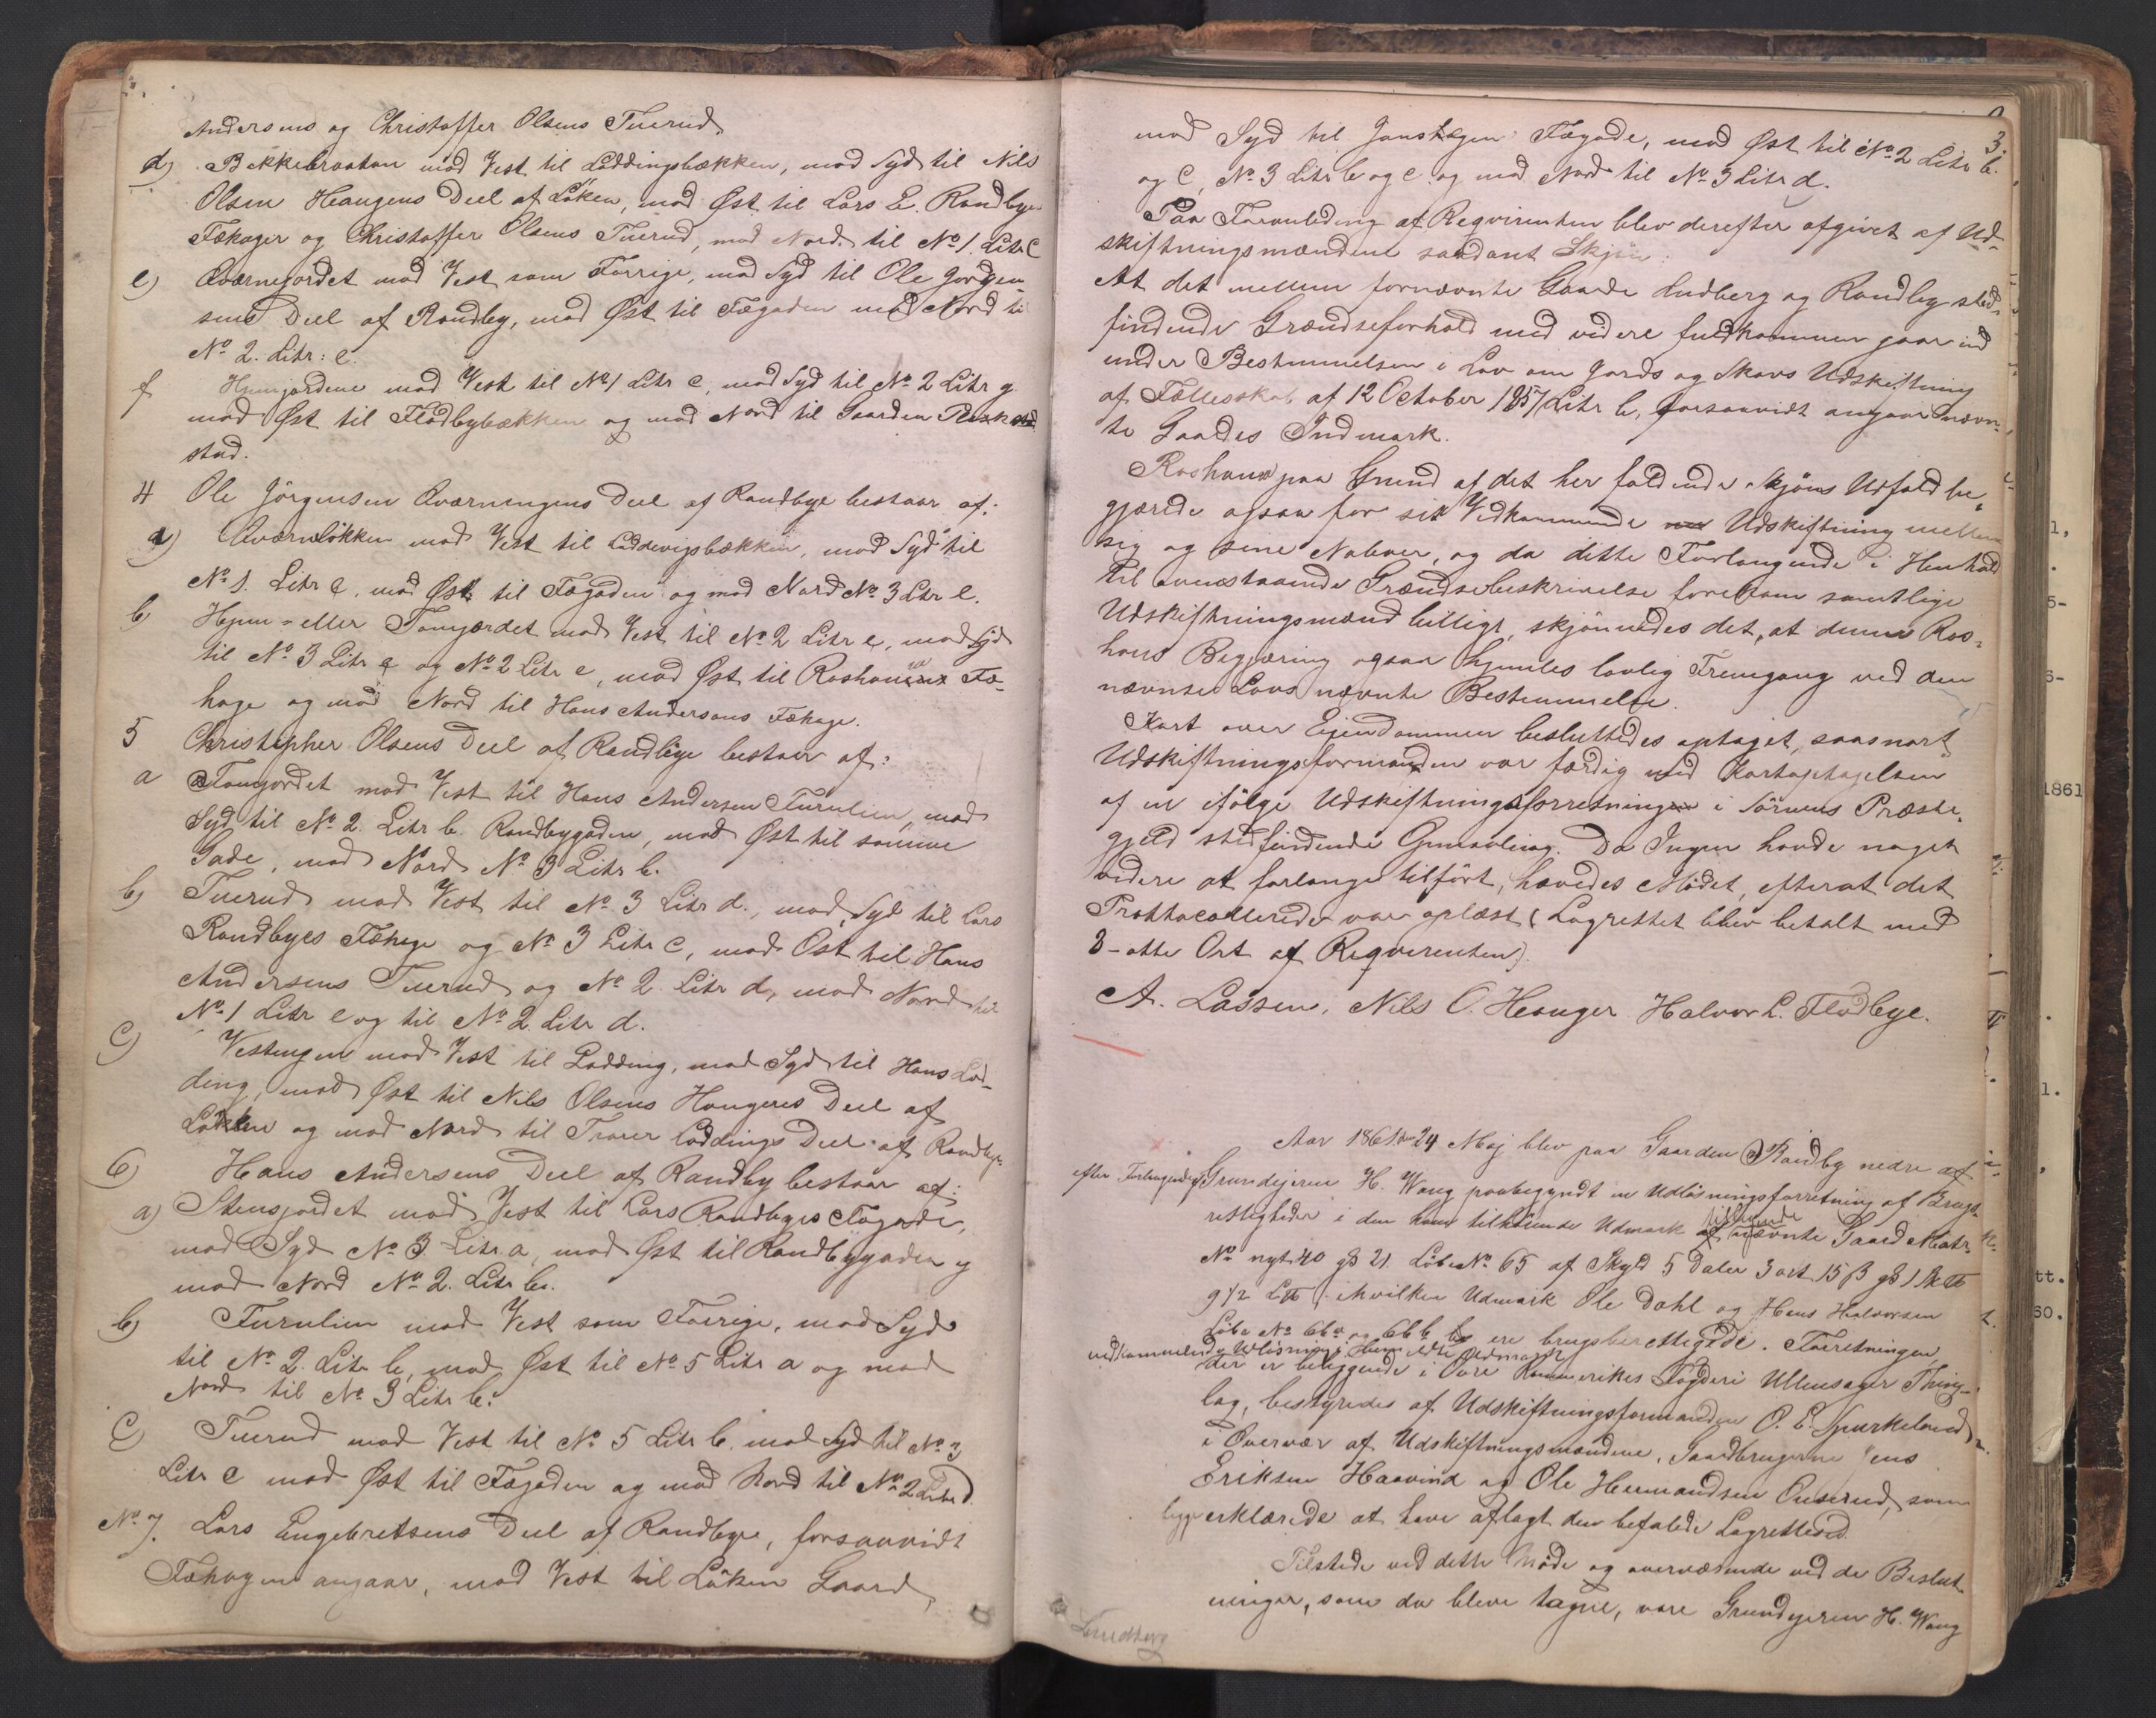 Andersens og Christoffer Olsens Tuerud
d) Bekkebraatan mod Vest til Loddingsbækken, mod Syd til Nils
Olsen Haugens Deel af Løken, mod Øst til Lars E. Randbyes
Fæhager og Christoffer Olsens Tuerud, mod Nord til No 1. Litr C
e) Qværnejordet mod Vest som Forrige, mod Syd til Ole Jørgen-
sens Deel af Randby, mod Øst til Fægaden mod Nord til
No 2. Litr: e.
f Hjemjordene mod Vest til No 1 Litr C, mod Syd til No 2 Litr g.
mod Øst til Flodbybækken og mod Nord til Gaarden
stad.
4 Ole Jörgensen Qværnengens Deel af Randbye bestaar af:
a) Qværnløkken mod Vest til Loddevigsbækken, mod Syd til
No 1. Litr e, mod Øst til Fægaden og mod Nord No 3 Litr e.
b Hjem- eller Tomjordet mod Vest til No 2 Litr e, mod Syd
til No 3 Litr a og No 2 Litr e, mod Øst til Fæ-
hage og mod Nord til Hans Andersens Fæhage.
5 Christopher Olsens Deel af Randbye bestaar af:
a Tomjordet mod Vest til Hans Andersen Furulien, mod
Syd til No 2. Litr b. Randbygaden, mod Øst til samme
Gade, mod Nord No 3 Litr b.
b) Tuerud mod Vest til No 3 Litr d., mod Syd til Lars
Randbyes Fæhage og No 3 Litr C, mod Øst til Hans
Andersens Tuerud og No 2. Litr d, mod Nord til
No 1 Litr e og til No 2. Litr d.
C) Vestengen mod Vest til Lodding, mod Syd til Hans Lod-
ding, mod Øst til Nils Olsens Haugens Deel af
Løkken og mod Nord til Loddings Deel af Randbye
6) Hans Andersens Deel af Randby bestaar af:
a) Stensjordet mod Vest til Lars Randbyes Fægade,
mod Syd No 3 Litr a, mod Øst til Randbygaden og
mod Nord No 2. Litr b.
b) Furulien mod Vest som Forrige, mod Syd
til No 2. Litr b, mod Øst til No 5 Litr a og mod
Nord til No 3 Litr b.
C) Tuerud mod Vest til No 5 Litr b. mod Syd til No 3
Litr C mod Øst til Fægaden og mod Nord til No 2 Litr d.
No 7. Lars Engebretsens Deel af Randbye, forsaavidt
Fæhagen angaar, mod Vest til Løken Gaard,
3.
mod Syd til Fægade, mod Øst til No 2 Litr b.
og C, No 3 Litr b og C og mod Nord til No 3 Litr d.
Paa Foranledning af Reqvirenten blev derefter afgivet af Ud-
skiftningsmændene saadant Skjøn:
At det mellem fornævnte Gaarde Lundberg og Randby sted-
findende Grændseforhold med videre fuldkommen gaar ind
under Bestemmelsen i Lov om Jords og Skovs Udskiftning
af Fællesskab af 12 October 1857 Litr b, forsaavidt angaar nævn-
te Gaardes Indmark.
Roshaug paa Grund af det her faldende Skjøns Udfald be-
gjærede ogsaa for sit Vedkommende Udskiftning mellem
sig og sine Naboer, og da dette Forlangende i Henhold
til ovenstaaende Grændsebeskrivelse forekom samtlige
Udskiftningsmænd billigt, skjønnedes det, at denne Ros-
haus Begjæring ogsaa hjemles lovlig Fremgang ved den
nævnte Lovs nævnte Bestemmelse.
Kart over Eiendommen besluttedes optaget, saasnart
Udskiftningsformanden var færdig med Kartoptagelsen
af en ifølge Udskiftningsforretningen i Sørums Præste-
gjeld stedfindende Opmaaling. Da Ingen havde noget
videre at forlange tilført, hævedes Mødet, efterat det
Prottocollerede var oplæst (Lagrettet blev betalt med
8-otte Ort af Reqvirenten).
A. Lassen, Nils O. Hauger Halvor L. Flodbye.
Aar 1861 den 24 Maj blev paa Gaarden Randby nedre af
efter Forlangende af Grundejeren H. Wang paabegyndt en Udløsningsforretning af Brugs-
rettigheder i den ham tilhørende Udmark tilhørende nævnte Gaard Matr.
No nyt 40 gl 21. Løbe No 65 af Skyld 5 Daler 3 ort 15 β gl 1 Sk℔
9 1/2 L℔ i hvilken Udmark Ole Dahl og Hans Halvorsen
Løbe No 66a og 66b ere brugsberettigede. Forretningen
vedkommende Udløsning i Udmark
der er beliggende i Øvre Romerikes Fogderi Ullensager Thing-
lag, bestyredes af Udskiftningsformanden O. E. Spurkeland
i Overvær af Udskiftningsmændene, Gaardbrugerne Jens
Eriksen Haavind og Ole Hermandsen Onsrud, som
begge erklærede at have aflagt den befalede Lagrettesed.
Tilstede ved dette Møde og overværende ved de Beslut-
ninger, som da bleve tagne, vare Grundejeren H. Wang
Lundberg
1861